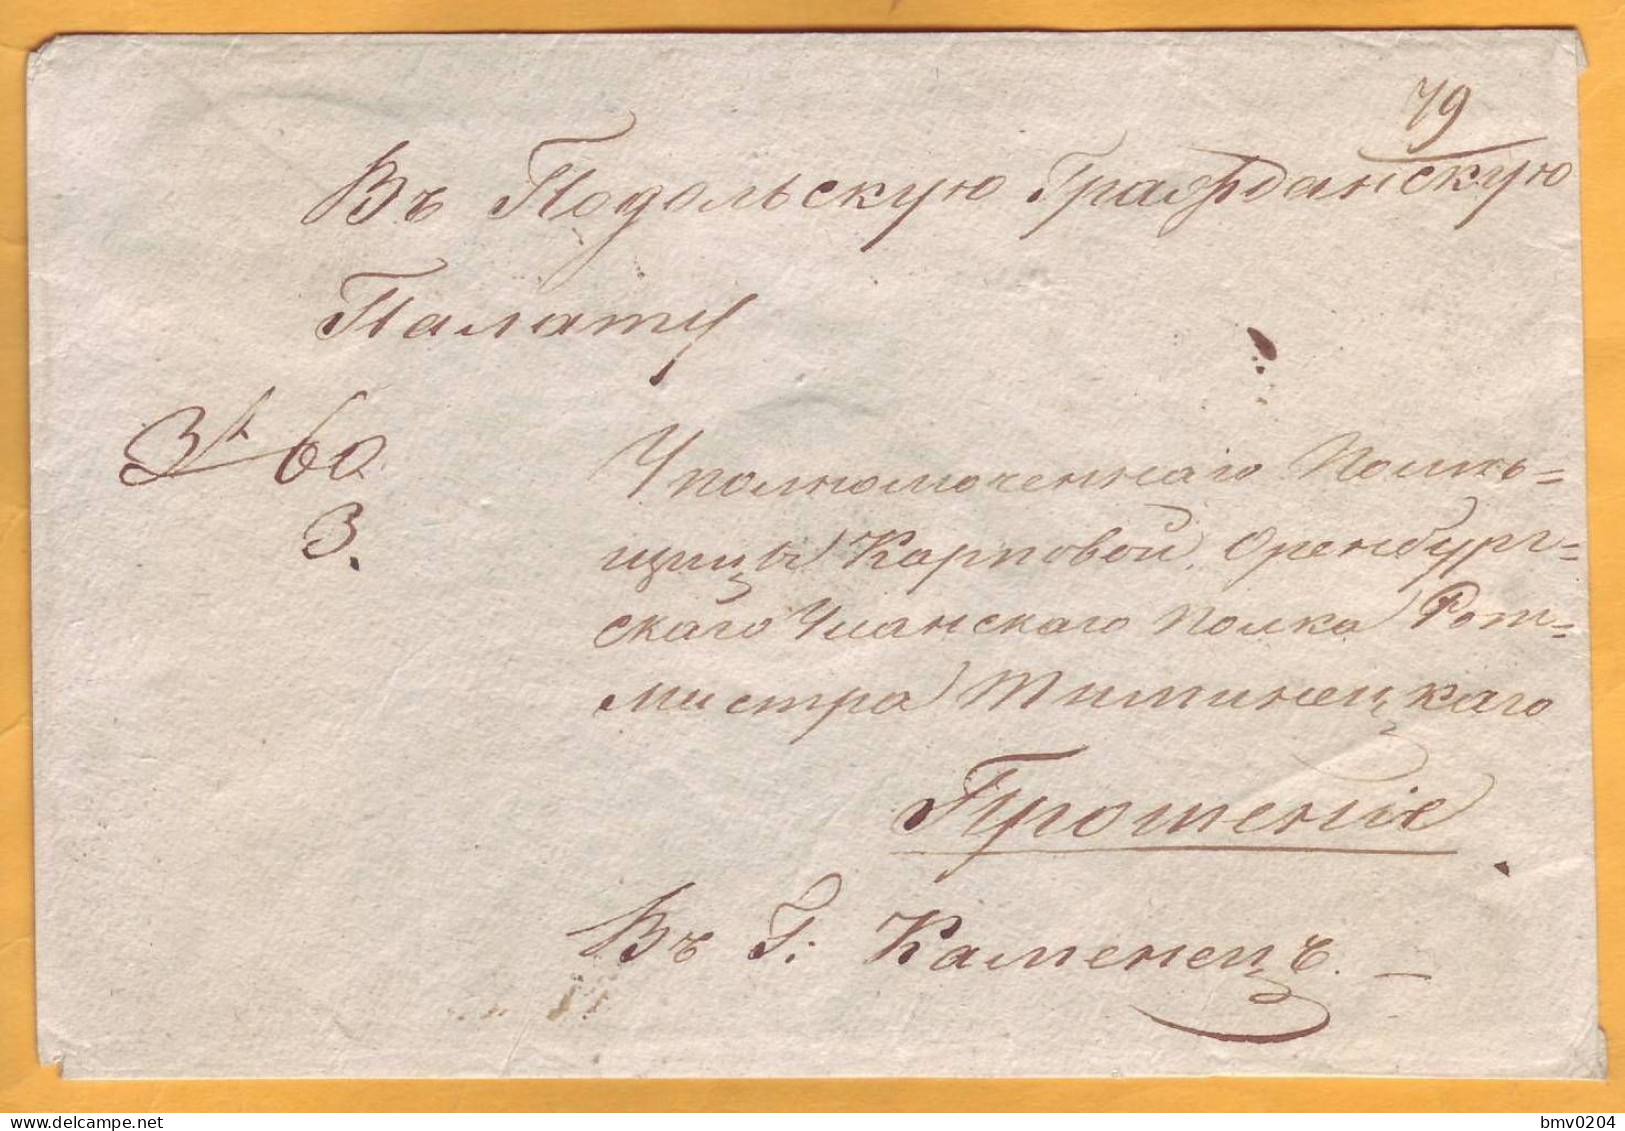 79
Въ Подольскую Гражданскую
Палату
60
3.
Уполномоченнаго Помѣ=
щицы Карповой, Оренбург=
скаго Уланскаго Полка Рот=
мистра Тиминецкаго
Прошеніе
Въ Г. Каменецъ. —
bmv0204